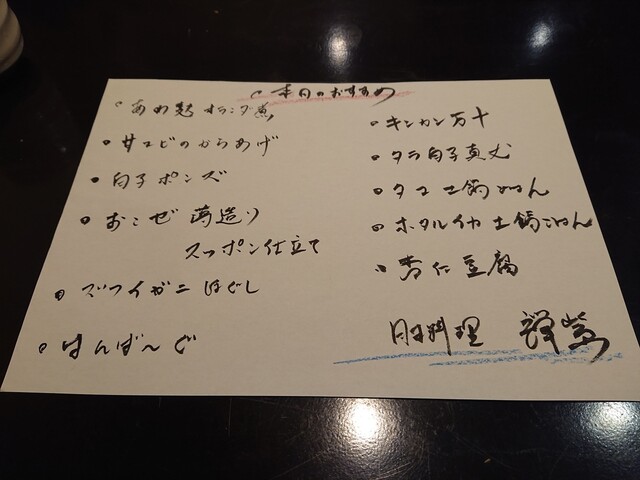 本日のおすすめ
甘エビのからあげ
白子ポンズ
おこぜ 薄造り
スッポン仕立て
ズワイガニ ほぐし
はんばーぐ
キンカン万十
タラ白子真丈
タコ土鍋ごはん
ホタルイカ土鍋ごはん
杏仁豆腐
料理